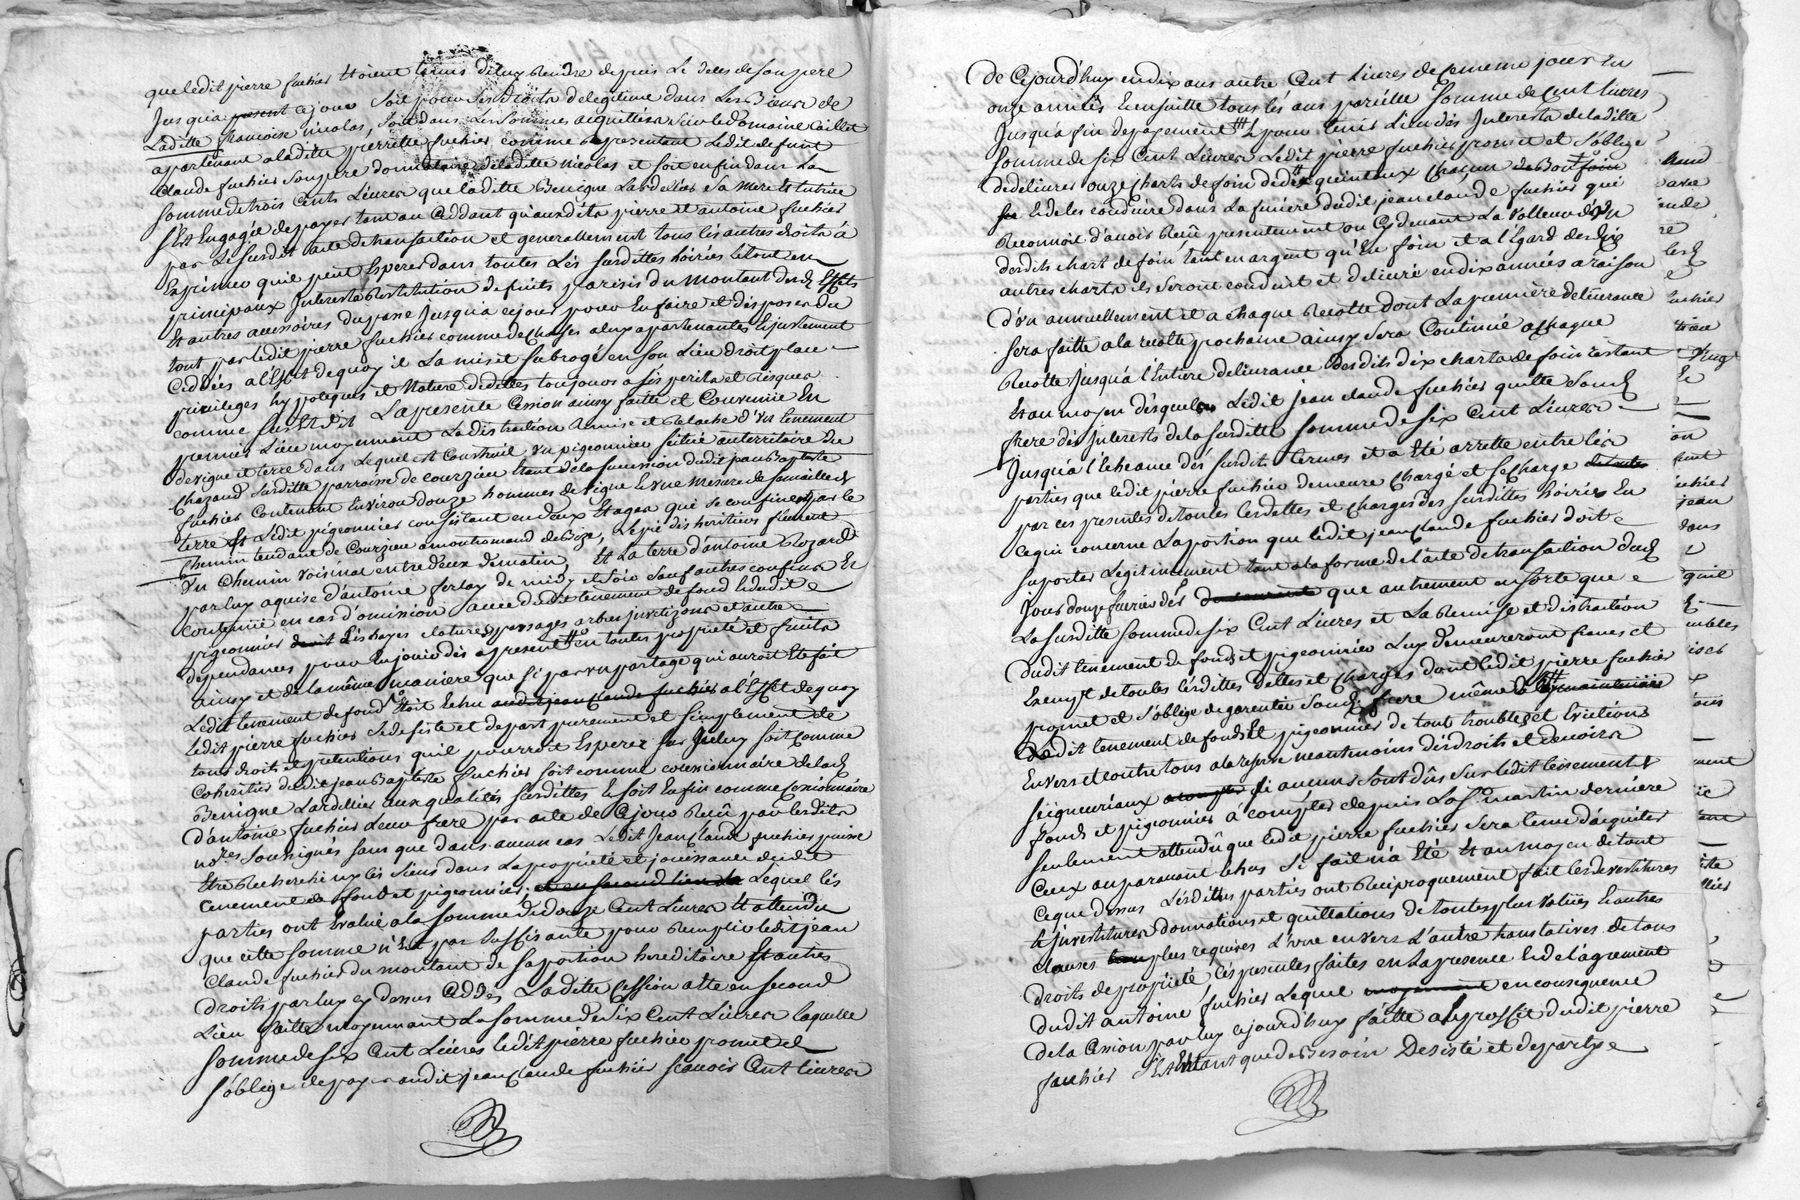 que ledit pierre fuchier etoient tenus de luy Rendre depuis Le deces de son pere
Jusqua present ce jour Soit pour ses droits de legitime dans Les Biens de
Laditte francoise nicolas, Soit dans Les Sommes
apartenant a laditte pierrette fuchier comme Representant Ledit defunt
Claude fuchier son pere donnataire de laditte nicolas et soit enfin dans La
Somme de trois Cents Livres que laditte Benigne Lardellier Sa mere et tutrice
S'est Engagée de payer tant au Ceddant qu'auxdits pierre et antoine fuchier
par Le susdit acte de transaction et generallement tous les autres droits a
Exprimer quil peut Esperer dans toutes Les susdittes hoiries le tout en
principaux Interests Restitution de fruits parisis du montant dud Effets
et autres accessoires du passé Jusqua ce jour pour En faire et disposer du
tout par ledit pierre fuchier comme de choses a luy apartenantes Et justement
Ceddées a l'Effet de quoy il La mis et subrogé en son Lieu droit place
privileges hypoteques et Nature d'icelles toujours a ses perils et Risques
comme sus Est dit La presente Cession ainsy faitte et Convenüe En
premier Lieu moyennant La distraction Remise et Relache d'un tenement
de vigne et terre dans Lequel est Construit un pigeonnier scitué au territoire du
Chazaud susditte parroisse de courzieu etant de la succession dudit jean Baptiste
fuchier Contenant Environ douze hommes de vigne Et une mesure de semaille de
terre et Ledit pigeonnier consistant en deux Etages qui se confinent par le
Chemin tendant de Courzieu a montromand de Bize, Le pré des heritiers
Un Chemin voisinal entre deux de matin, Et La terre d'antoine Rozard
par luy aquise d'antoine ferlay de midy et soir sauf autres confins Et
contenüe en cas d'omission avec dudit tenement de fond Et dudit
pigeonnier Les hayes clotures passages arbres jnvetizons et autres
dependances pour En jouir des a present en toutes propriété et fruits
ainsy et de la même maniere que si par un partage qui auroit Eté fait
Ledit tenement de fond Etoit Echu audit jean Claude fuchier a l'Effet de quoy
Ledit pierre fuchier Se desiste et depart purement et simplement de
tous droits et pretentions quil pourroit Esperer sur Iceluy soit comme
Coheritier dudit jean Baptiste fuchier soit comme cessionnaire de lad
Benigne Lardellier aux qualités susdittes Et soit Enfin comme Cessionnaire
d'antoine fuchier Leur frere par acte de Ce jour Reçû par lesdits
nores Soussignés sans que dans aucun cas Ledit Jean Claude fuchier puisse
Etre Recherché ny les siens dans La propriété et jouissance dudit
tenement de fond et pigeonnier; et en second lieu de Lequel les
parties ont Evalué a la somme de douze Cent Livres Et attendu
que cette somme n'est pas suffisante pour Remplir ledit jean
Claude fuchier du montant de sa portion hereditaire Et autres
droits par luy cy dessus Ceddés Laditte Cession a été en second
Lieu faitte moyennant La somme de six Cent Livres laquelle
somme de six Cent Livres ledit pierre fuchier promet et
s'oblige de payer audit jean Claude fuchier sçavoir Cent Livres
De Cejourd'huy en dix ans autre Cent Livres de ce meme jour En
onze années Et ensuitte tous les ans pareille somme de Cent Livres
Jusqu'a fin de payement Et pour tenir Lieu des Interests de laditte
somme de six Cent Livres Ledit pierre fuchier promet et s'oblige
de delivrer onze charts de foin de dix quinteaux chacun de Bon foin
Et de les conduire dans La feniere dudit jean claude fuchier qui
Reconnoit d'avoir Reçû presentement ou Cydevant La valleur d'un
desdits chart de foin tant en argent qu'En foin et a l'Egard des dix
autres charts ils seront conduit et delivré en dix années a raison
d'un annuellement et a chaque Recolte dont La premiere delivrance
sera faitte a la recolte prochaine ainsy sera Continué a chaque
Recolte Jusqu'a l'Entiere delivrance Desdits dix charts de foin restant
Et au moyen desquels Ledit jean claude fuchier quitte Sond
frere des Interests de la susditte somme de six Cent Livres
Jusqu'a l'Echeance des susdits termes et a Eté arretté entre les
parties que ledit pierre fuchier demeure Chargé et se charge
par ces presentes de toutes les dettes et charges des susdittes hoiries En
ce qui concerne La portion que ledit jean Claude fuchier doit
suporter Legitimement tant a la forme de l'acte de transaction dud
jour douze fevrier des que autrement en sorte que
La susditte somme de six Cent Livres et La Remise et distraction
Dudit tenement de fond et pigeonnier Luy demeureront francs et
Exempt de toutes lesdittes dettes et charges dont ledit pierre fuchier
promet et s'oblige de garentir Sond frere même de le maintenir
Ledit tenement de fonds Et pigeonnier de tout troubles et Evictions
Envers et contre tous a la reserve neantmoins des droits et devoirs
seigneuriaux si aucuns sont dûs sur Ledit tenement de
fonds et pigeonnier à compter depuis La St martin derniere
seulement attendû que ledit pierre fuchier sera tenu d'aquiter
Ceux auparavant Echus si fait n'a Eté Et au moyen de tout
Ceque dessus Lesdittes parties ont Reciproquement fait les devestitures
Et jnvestitures donnations et quittations de toutes plus values Et autres
clauses plus requises L'une envers L'autre translatives de tous
droits de propriété, les presentes faites en La presence Et de l'agrement
dudit antoine fuchier Lequel moyennant en consequence
de la Cession par luy cejourd'huy faitte au proffit dudit pierre
fuchier s'est En tant que de Besoin Desisté et departy